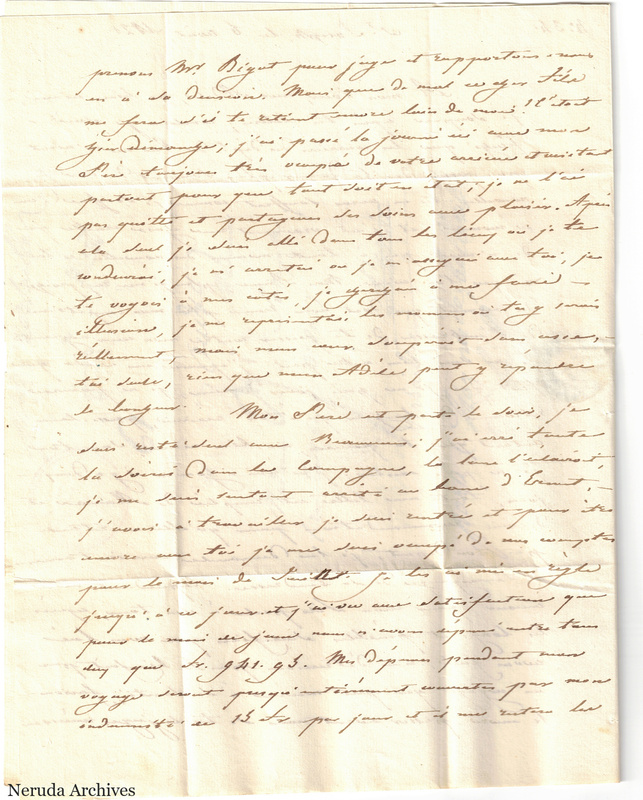 prenons Mr. Bigot pour juge et rapportons-nous
en à sa décision. Mais que de mal ce cher
me fera s'il te retient encore loin de moi! C'était
hier dimanche; j'ai passé la journée ici avec mon
Père toujours très occupé de votre arrivée et
partout pour que tout soit en état; je ne l'ai
pas quitté et partageais ses soins avec plaisir. Après
cela seul je suis allé dans tous les lieux où je te
conduirai, je m'arrêtai où je m'assoyais avec toi, je
te voyais à mes côtés, je à me faire
illusion, je me représentais les moments où tu y serais
réellement, mais mon cœur soupirait sans cesse,
toi seule, rien que mon Adèle peut y répandre
le bonheur. Mon Père est parti le soir, je
suis resté seul avec j'ai erré toute
la soirée dans la Campagne, la lune l'éclairait,
je me suis surtout arrêté au banc d'Ernest,
j'avais à travailler je suis rentré et pour être
encore avec toi je me suis occupé de nos comptes
pour le mois de Juillet. Je les ai mis en règle
jusqu'à ce jour et j'ai vu avec satisfaction que
pour le mois de juin nous n'avons dépensé entre tous
deux que fr. 941.95. Mes dépenses pendant mon
voyage seront presqu'entièrement couvertes par mon
indemnité de 15 fr par jour et il me restera les
Neruda Archives